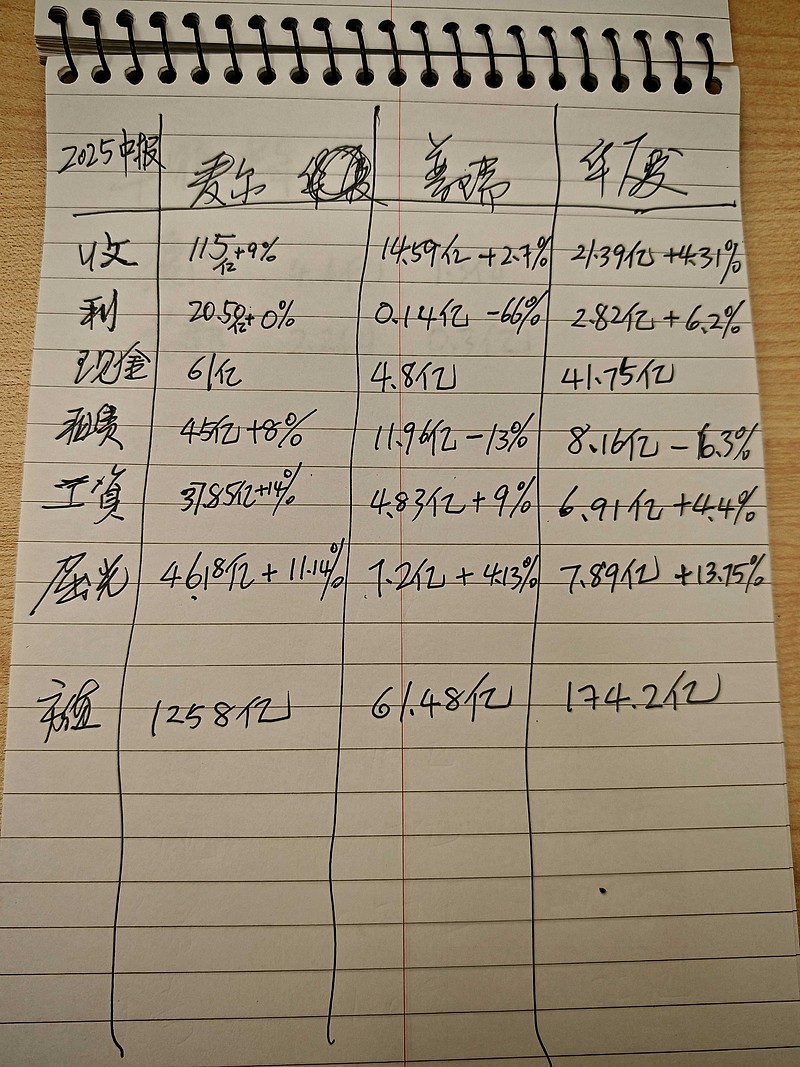 2025中报 麦尔 普瑞 华厦
收 115亿+9% 14.59亿+2.7% 21.39亿+4.31%
利 20.5亿+0% 0.14亿-66% 2.82亿+6.2%
现金 61亿 4.8亿 41.75亿
租赁 45亿+8% 11.96亿-13% 8.16亿-6.3%
工资 37.85亿+14% 4.83亿+9% 6.91亿+4.4%
屈光 46.18亿+11.14% 7.2亿+4.13% 7.89亿+13.75%
市值 1258亿 61.48亿 174.2亿